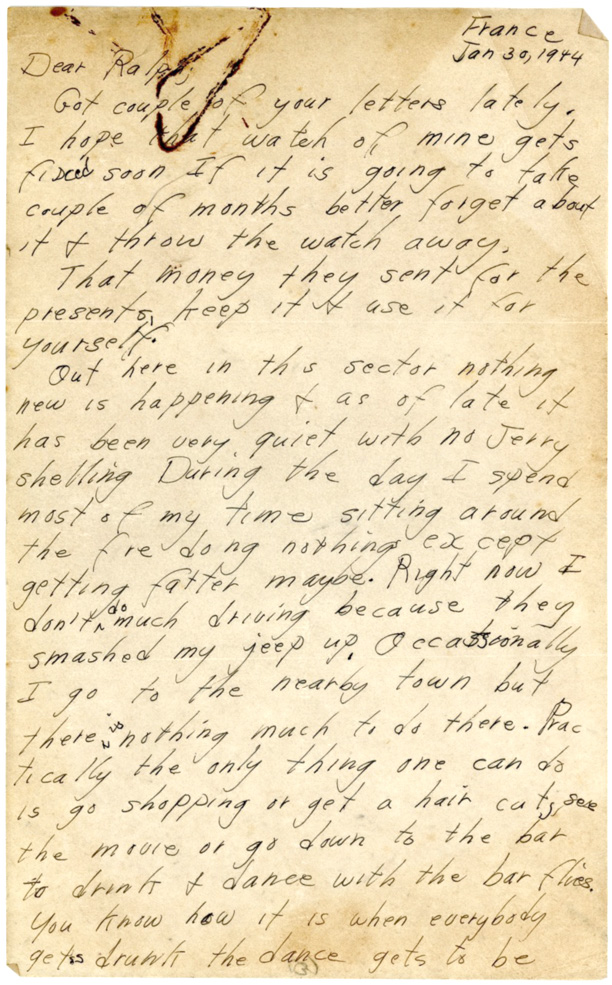 France
Jan 30, 1944
Dear Ralph,
Got couple of your letters lately.
I hope that watch of mine gets
fixed soon If it is going to take
couple of months better forget about
it & throw the watch away.
That money they sent for the
presents, keep it & use it for
yourself.
Out here in this sector nothing
new is happening & as of late it
has been very quiet with no Jerry
shelling During the day I spend
most of my time sitting around
the fire doing nothing except
getting fatter maybe. Right now I
don't do much driving because they
smashed my jeep up. Occassionally
I go to the nearby town but
there is nothing much to do there. Prac
tically the only thing one can do
is go shopping or get a hair cut, see
the movie or go down to the bar
to drink & dance with the bar flies.
You know how it is when everybody
gets drunk the dance gets to be